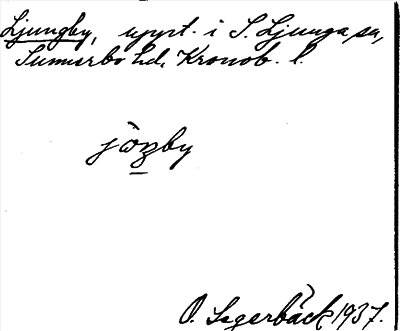 Ljungby, uppt. i S. Ljunga sn,
Sunnerbo hd, Kronob. l.
jöŋby
O. Sagerbäck 1937.